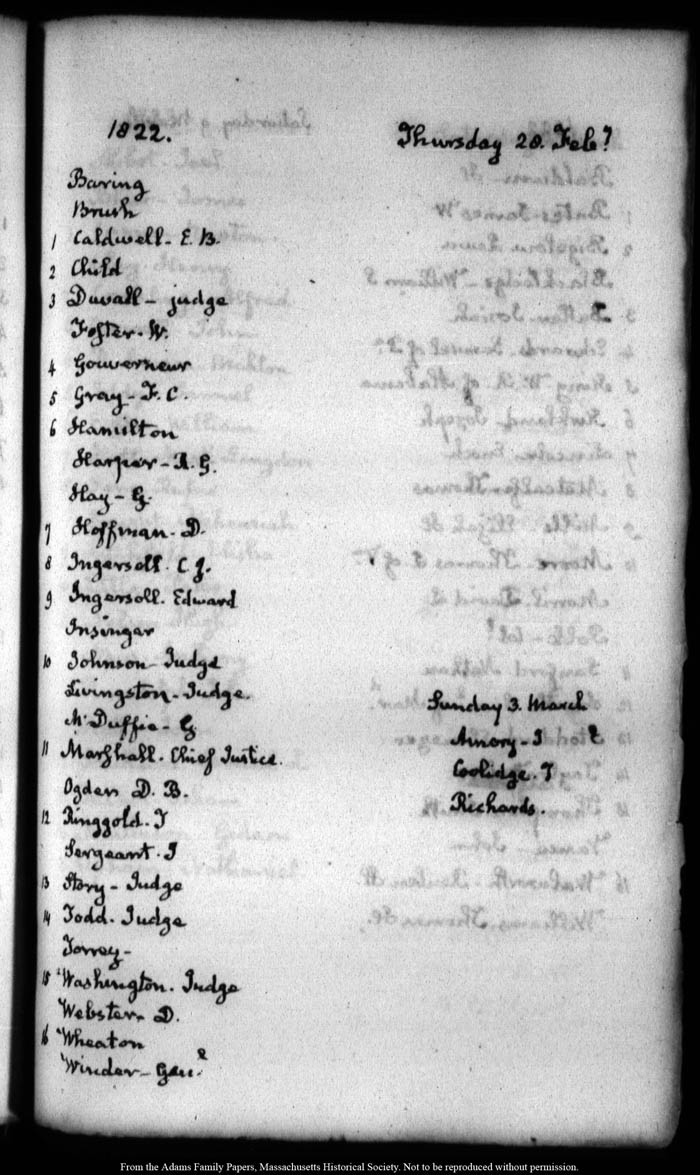 1822. Thursday 28. Feby
Baring
Brush
1 Caldwell. E. B.
2 Child
3 Duvall - judge
Foster. W.
4 Gouverneur
5 Gray - F. C.
6 Hamilton
Harper - R. G.
Hay - G.
7 Hoffman. D.
8 Ingersoll. C. J.
9 Ingersoll. Edward
Insinger
10 Johnson - Judge
Livingston - Judge.
McDuffie - G
11 Marshall. Chief Justice.
Ogden D. B.
12 Ringgold. T
Sergeant. J
13 Story - Judge
14 Todd. Judge
Torrey -
15 Washington. Judge
Webster. D.
16 Wheaton
Winder - Genl
Sunday 3. March
Amory - J
Coolidge. J
Richards.
From the Adams Family Papers, Massachusetts Historical Society. Not to be reproduced without permission.